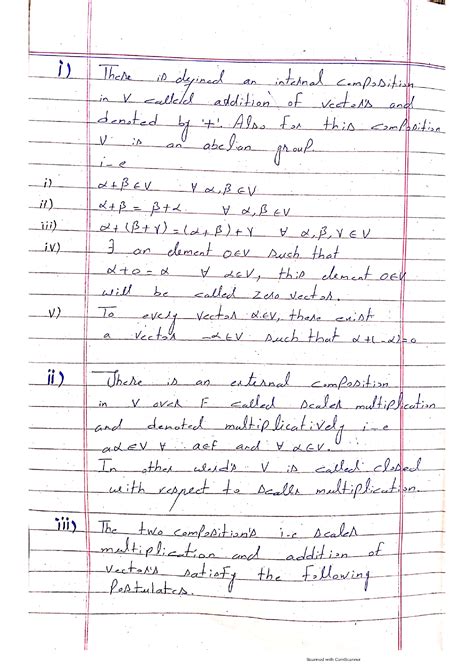 i) There is defined an internal composition
in V called addition of vectors and
denoted by '+'. Also for this composition
V is an abelian group.
i-e
i) α+β∈V ∀ α,β∈V
ii) α+β = β+α ∀ α,β∈V
iii) α+(β+γ)=(α+β)+γ ∀ α,β,γ∈V
iv) ∃ an element 0∈V such that
α+0=α ∀ α∈V, this element 0∈V
will be called zero vector.
v) To every vector α∈V, there exist
a vector -α∈V such that α+(-α)=0
ii) There is an external composition
in V over F called scaler multiplication
and denoted multiplicatively i-e
aα∈V ∀ a∈F and ∀ α∈V.
In other words V is called closed
with respect to scaller multiplication.
iii) The two composition's i-e scaler
multiplication and addition of
vectors satisfy the following
Postulates.
Scanned with CamScanner